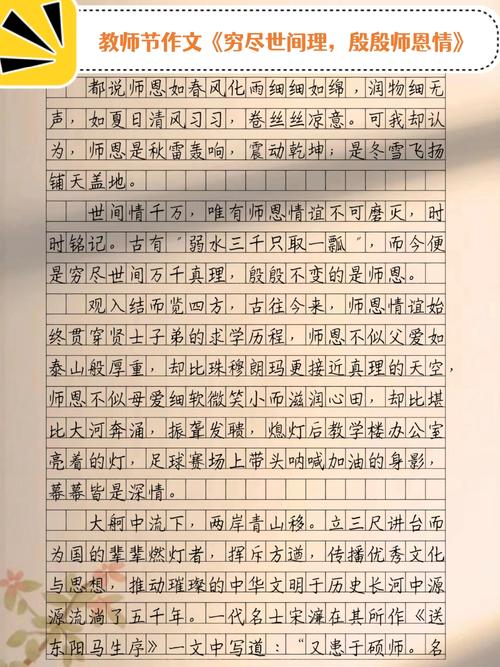 教师节作文《穷尽世间理，殷殷师恩情》
都说师恩如春风化雨细细如绵，润物细无
声，如夏日清风习习，卷丝丝凉意。可我却认
为，师恩是秋雷轰响，震动乾坤；是冬雪飞扬
铺天盖地。
世间情千万，唯有师恩情谊不可磨灭，时
时铭记。古有“弱水三千只取一瓢”，而今便
是穷尽世间万千真理，殷殷不变的是师恩。
观入结而览四方，古往今来，师恩情谊始
终贯穿贤士子弟的求学历程，师恩不似父爱如
泰山般厚重，却比珠穆朗玛更接近真理的天空，
师恩不似母爱细软微笑小而滋润心田，却比堪
比大河奔涌，振聋发聩，熄灯后教学楼办公室
亮着的灯，足球赛场上带头呐喊加油的身影，
幕幕皆是深情。
大舸中流下，两岸青山移。立三尺讲台而
为国的辈辈燃灯者，挥斥方遒，传播优秀文化
与思想，推动璀璨的中华文明于历史长河中源
源流淌了五千年。一代名士宋濂在其所作《送
东阳马生序》一文中写道：“又患于硕师。名